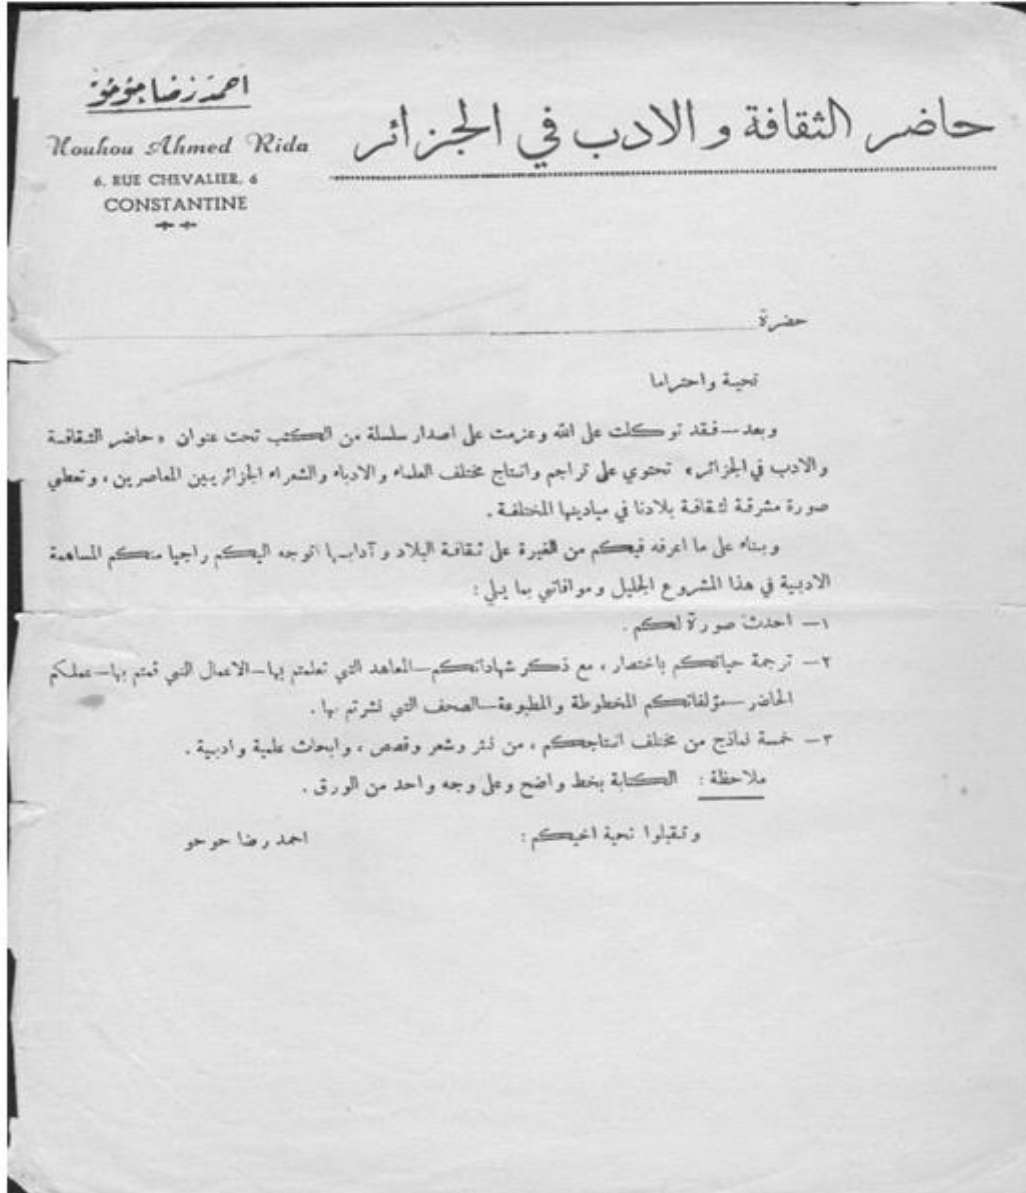 حاضر الثقافة و الادب في الجزائر
احمد رضا حوحو
Houhou Ahmed Rida
6, RUE CHEVALIER, 6
CONSTANTINE
حضرة
تحية واحتراما
وبعد — فقد توكلت على الله وعزمت على اصدار سلسلة من الكتب تحت عنوان « حاضر الثقافة
والادب في الجزائر » تحتوي على تراجم وانتاج مختلف العلماء والادباء والشعراء الجزائريين المعاصرين ، وتعطي
صورة مشرقة لثقافة بلادنا في ميادينها المختلفة .
وبناء على ما اعرفه فيكم من الغيرة على ثقافة البلاد وآدابها اتوجه اليكم راجيا منكم المساهمة
الادبية في هذا المشروع الجليل وموافاتي بما يلي :
١ — احدث صورة لكم .
٢ — ترجمة حياتكم باختصار ، مع ذكر شهاداتكم — المعاهد التي تعلمتم بها — الاعمال التي قمتم بها — عملكم
الحاضر — مؤلفاتكم المخطوطة والمطبوعة — الصحف التي نشرتم بها .
٣ — خمسة نماذج من مختلف انتاجكم ، من نثر وشعر وقصص ، وابحاث علمية وادبية .
ملاحظة : الكتابة بخط واضح وعلى وجه واحد من الورق .
وتقبلوا تحية اخيكم : احمد رضا حوحو